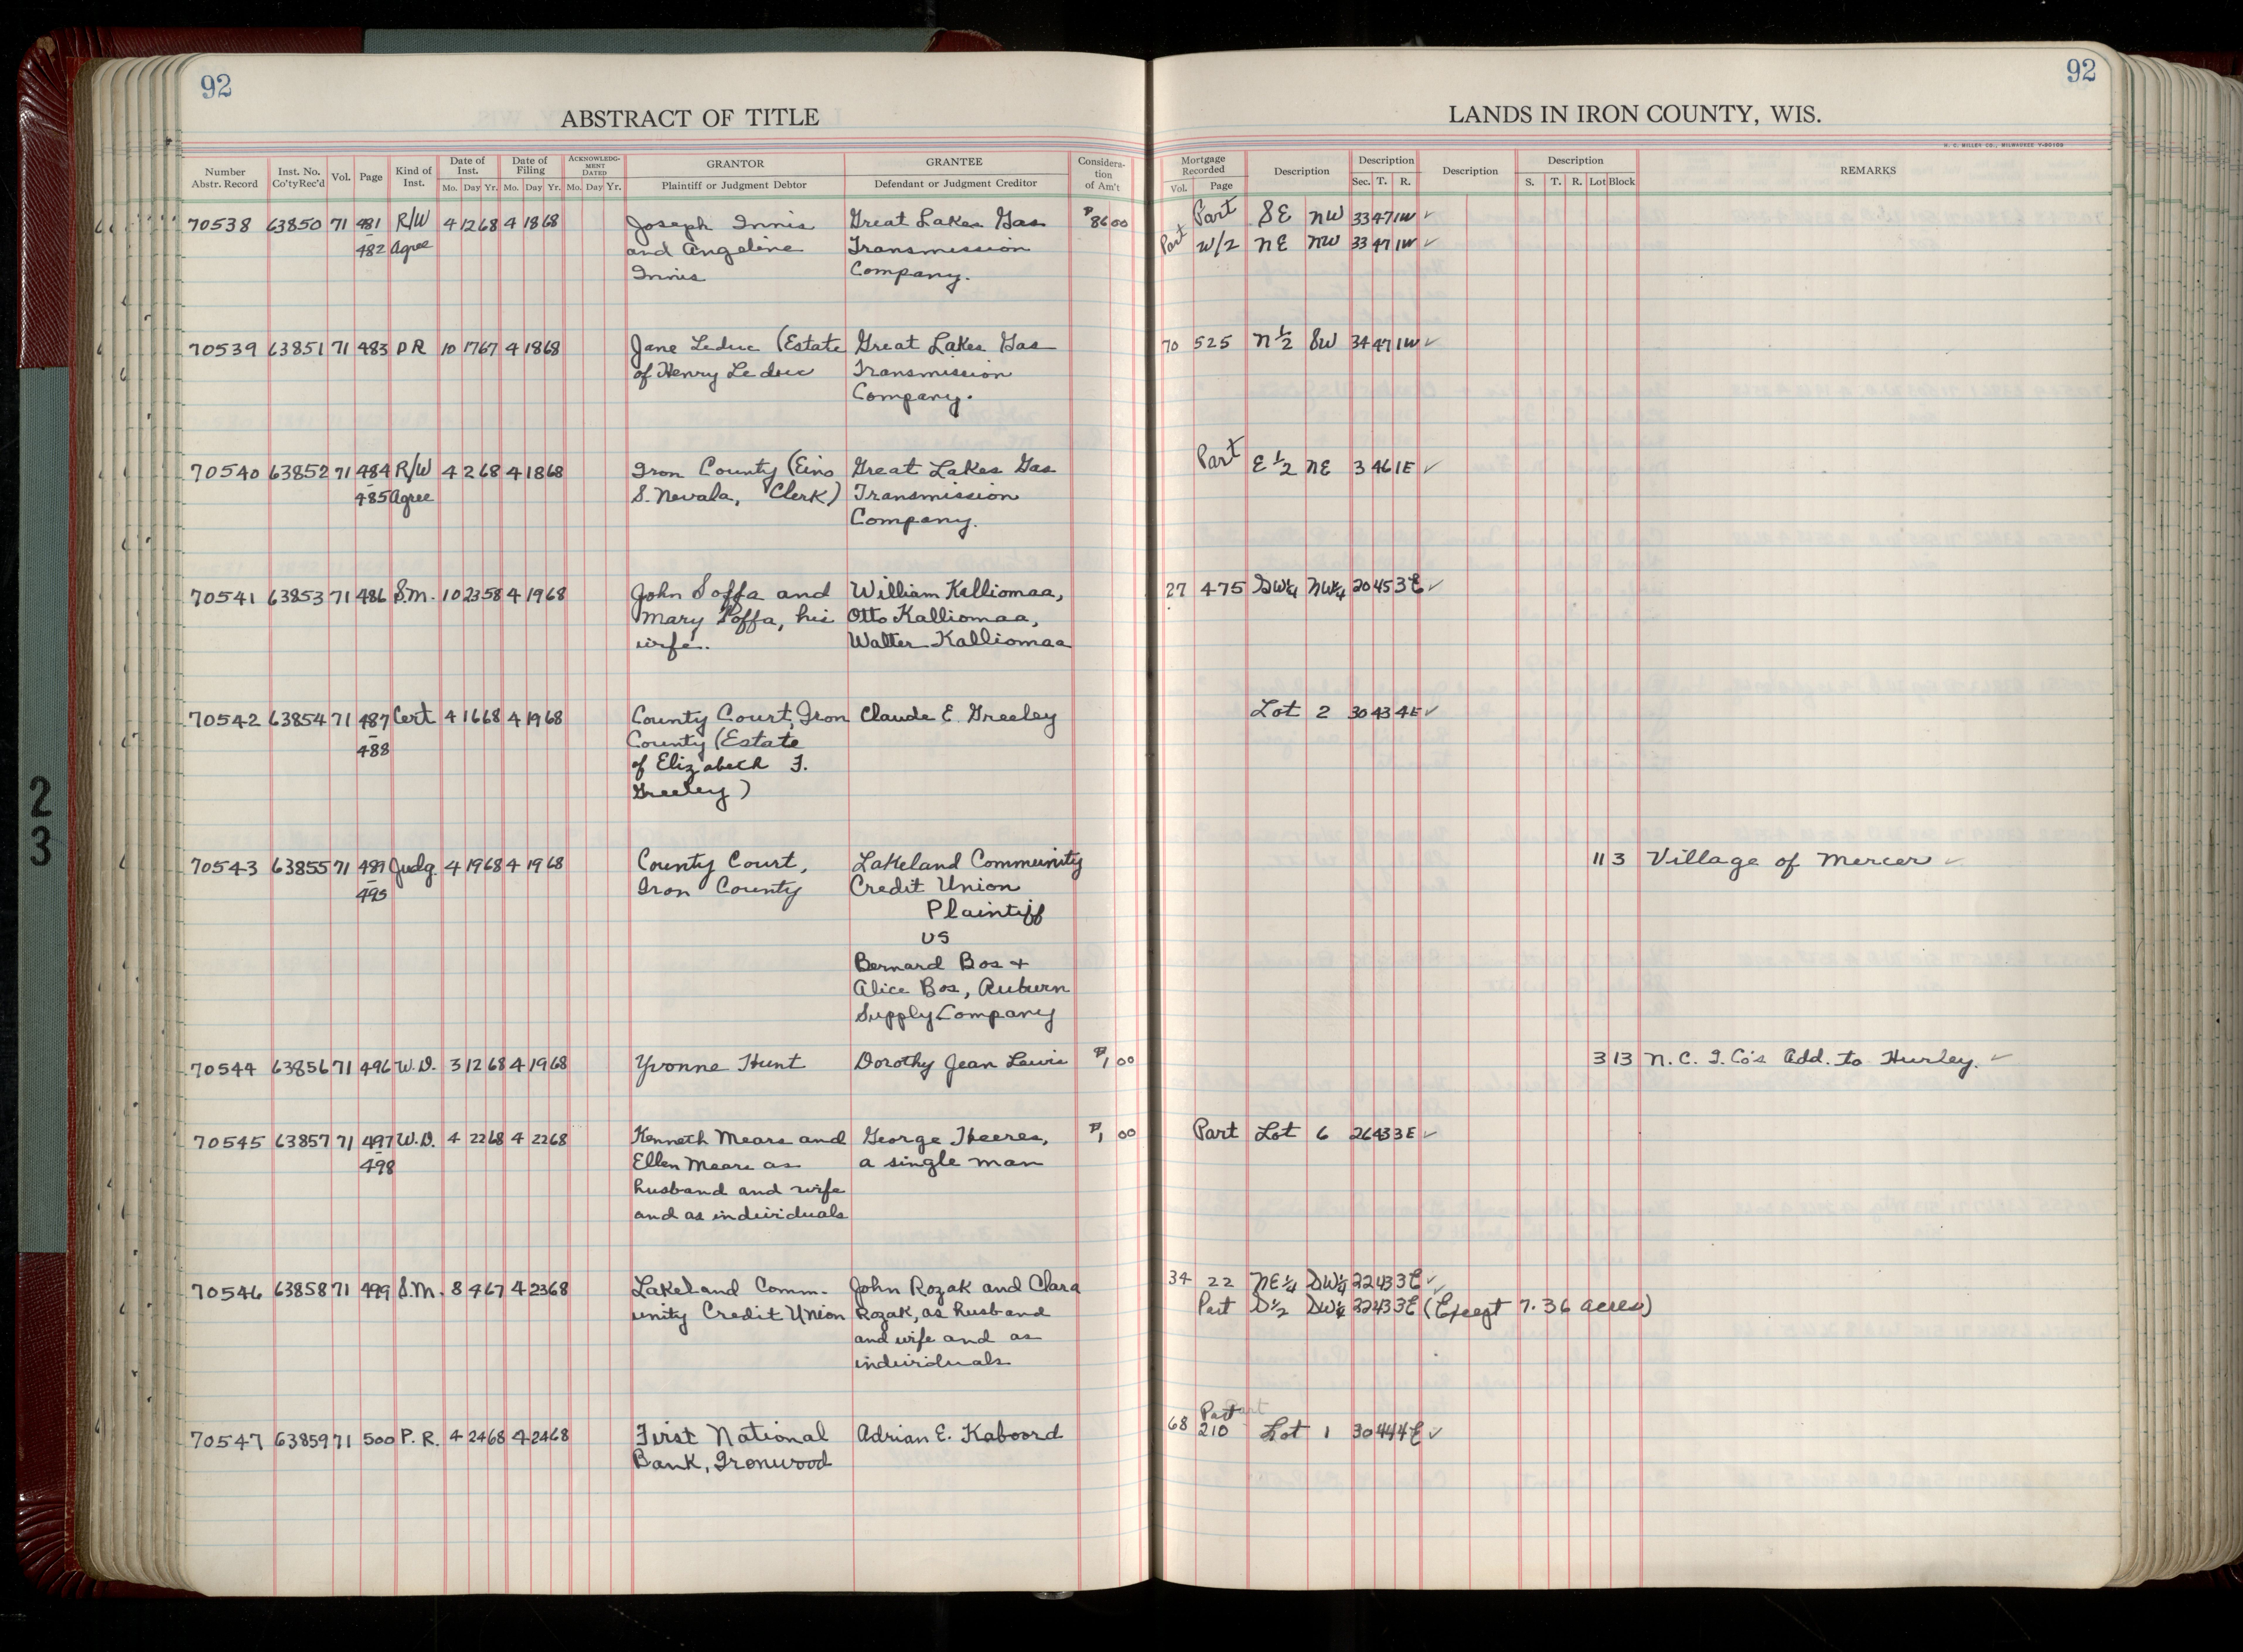 92
92
ABSTRACT OF TITLE
LANDS IN IRON COUNTY, WIS.
H. C. MILLER CO., MILWAUKEE Y-50109
Number Abstr. Record Inst. No. Co'ty Rec'd Vol. Page Kind of Inst. Date of Inst. Mo. Day Yr. Date of Filing Mo. Day Yr. ACKNOWLEDGMENT DATED Mo. Day Yr. GRANTOR Plaintiff or Judgment Debtor GRANTEE Defendant or Judgment Creditor Consideration of Am't Mortgage Recorded Vol. Page Description Description Sec. T. R. Description Description S. T. R. Lot Block REMARKS
70538 63850 71 481 R/W 4 12 68 4 18 68 Joseph Innis Great Lakes Gas $86 00 Part SE NW 33 47 1W ✓
482 Agree and Angeline Transmission Part W/2 NE NW 33 47 1W ✓
Innis Company.
70539 63851 71 483 PR 10 17 67 4 18 68 Jane Leduc (Estate Great Lakes Gas 70 525 N 1/2 SW 34 47 1W ✓
of Henry Leduc Transmission
Company.
70540 63852 71 484 R/W 4 2 68 4 18 68 Iron County (Eino Great Lakes Gas Part E 1/2 NE 3 46 1E ✓
485 Agree S. Nevala, Clerk) Transmission
Company.
70541 63853 71 486 S.M. 10 23 58 4 19 68 John Soffa and William Kalliomaa, 27 475 SW1/4 NW1/4 20 45 3E ✓
Mary Soffa, his Otto Kalliomaa,
wife. Walter Kalliomaa
70542 63854 71 487 Cert 4 16 68 4 19 68 County Court, Iron Claude E. Greeley Lot 2 30 43 4E ✓
488 County (Estate
of Elizabeth F.
Greeley)
70543 63855 71 489 Judg. 4 19 68 4 19 68 County Court, Lakeland Community 11 3 Village of Mercer ✓
495 Iron County Credit Union
Plaintiff
vs
Bernard Bos +
Alice Bos, Auburn
Supply Company
70544 63856 71 496 W.D. 3 12 68 4 19 68 Yvonne Hunt Dorothy Jean Lewis $1 00 3 13 N. C. I. Co's Add. to Hurley. ✓
70545 63857 71 497 W.D. 4 22 68 4 22 68 Kenneth Mears and George Heeres, $1 00 Part Lot 6 26 43 3E ✓
498 Ellen Mears as a single man
husband and wife
and as individuals
70546 63858 71 499 S.M. 8 4 67 4 23 68 Lakeland Comm- John Rozak and Clara 34 22 NE1/4 SW1/4 22 43 3E ✓
unity Credit Union Rozak, as husband Part S1/2 SW1/4 22 43 3E (Except 7.36 acres)
and wife and as
individuals
Part
70547 63859 71 500 P.R. 4 24 68 4 24 68 First National Adrian E. Kaboord 68 210 Lot 1 30 44 4E ✓
Bank, Ironwood
2
3